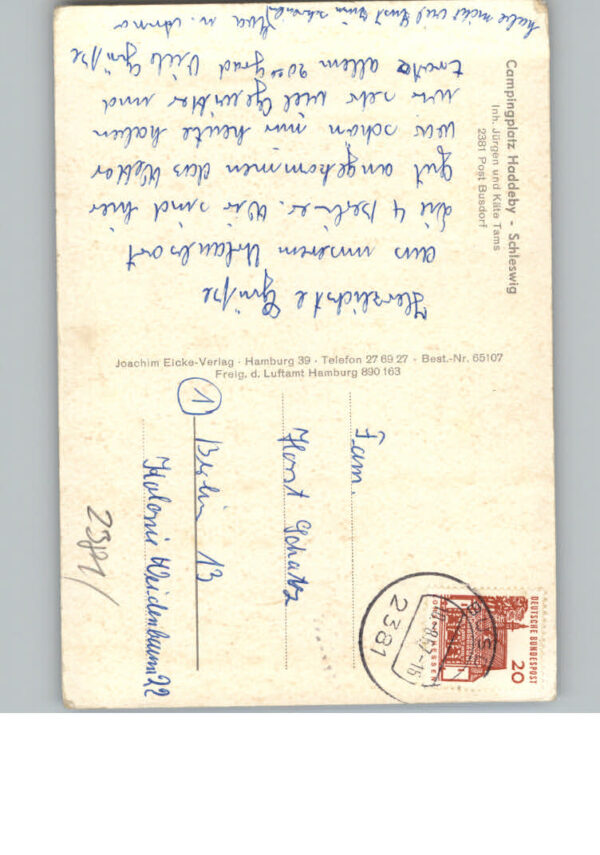 Campingplatz Haddeby - Schleswig
Inh. Jürgen und Käte Tams
2381 Post Busdorf
Herzlichste Grüße
aus unserem Urlaubsort
die 4 Berliner. Wir sind hier
gut angekommen das Wetter
war schön nur heute haben
wir sehr viel Gewitter und
trotz allem 20 Grad Viele Grüße
habe nicht viel Lust zum schreiben
Joachim Eicke-Verlag · Hamburg 39 · Telefon 27 69 27 · Best.-Nr. 65107
Freig. d. Luftamt Hamburg 890 163
DEUTSCHE BUNDESPOST
20
2381
Fam.
Horst Schatz
1 Berlin 13
Kolonie Weidenbaum 22